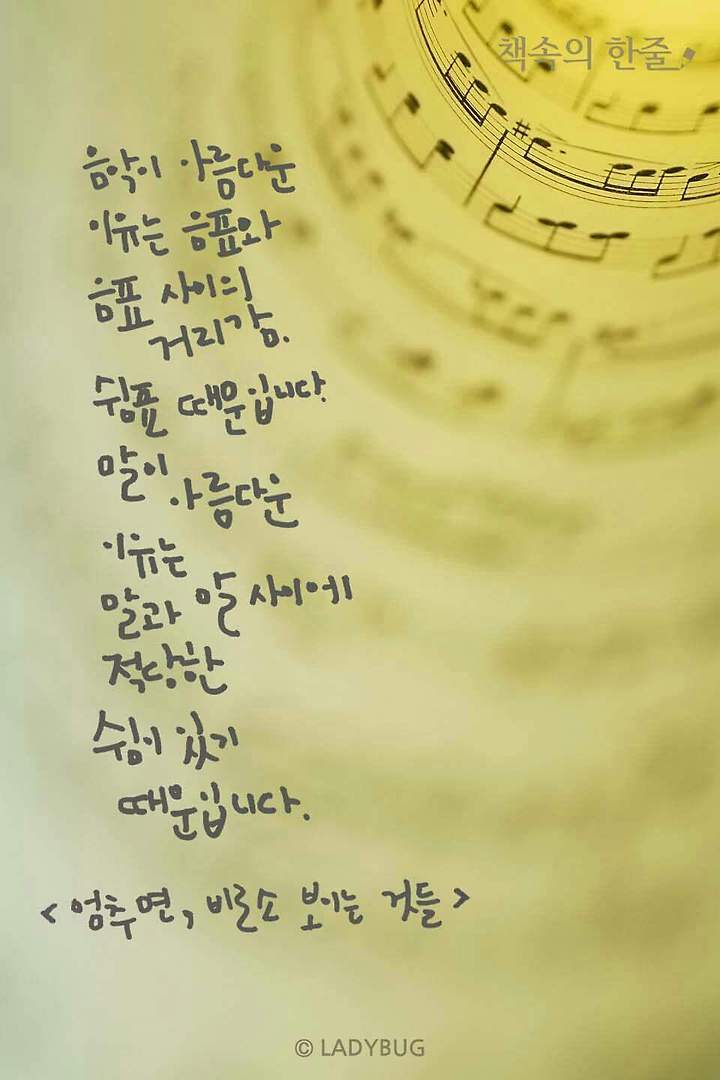 책속의 한줄
음악이 아름다운
이유는 음표와
음표 사이의
거리감.
쉼표 때문입니다.
말이
아름다운
이유는
말과 말 사이에
적당한
쉼이 있기
때문입니다.
<멈추면, 비로소 보이는 것들>
© LADYBUG